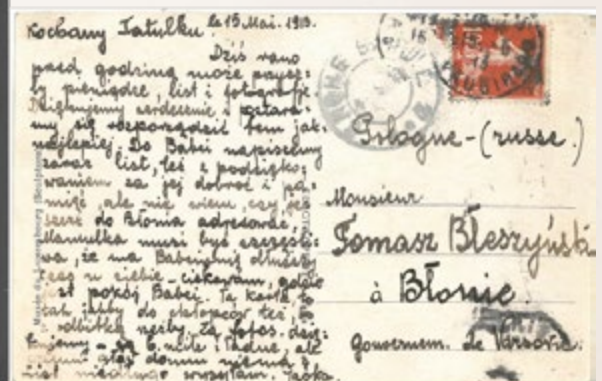 Kochany Tatulku. le 15 Mai. 1913.
Dziś rano
przed godziną może
pieniądze, list i fotografje.
Dziękujemy serdecznie i postara-
my się rozporządzić tem jak
najlepiej. Do Babci napiszemy
zaraz list, też z podzięko-
waniem za jej dobroć i pa-
mięć, ale nie wiem, czy jes
do Błonia adresować.
Mamulka musi być szczęśli-
wa, że ma dłuższy
czas u siebie - ciekawam, gdzie
jest pokój Babci. Tę kartę to
tak jakby do chłopców też,
odbitkę
są b. miłe i ładne, ale
niema
list niedługo
Pologne - (russe.)
Monsieur
Tomasz Błeszyński
à Błonie.
Gouvernem. de Varsovie.